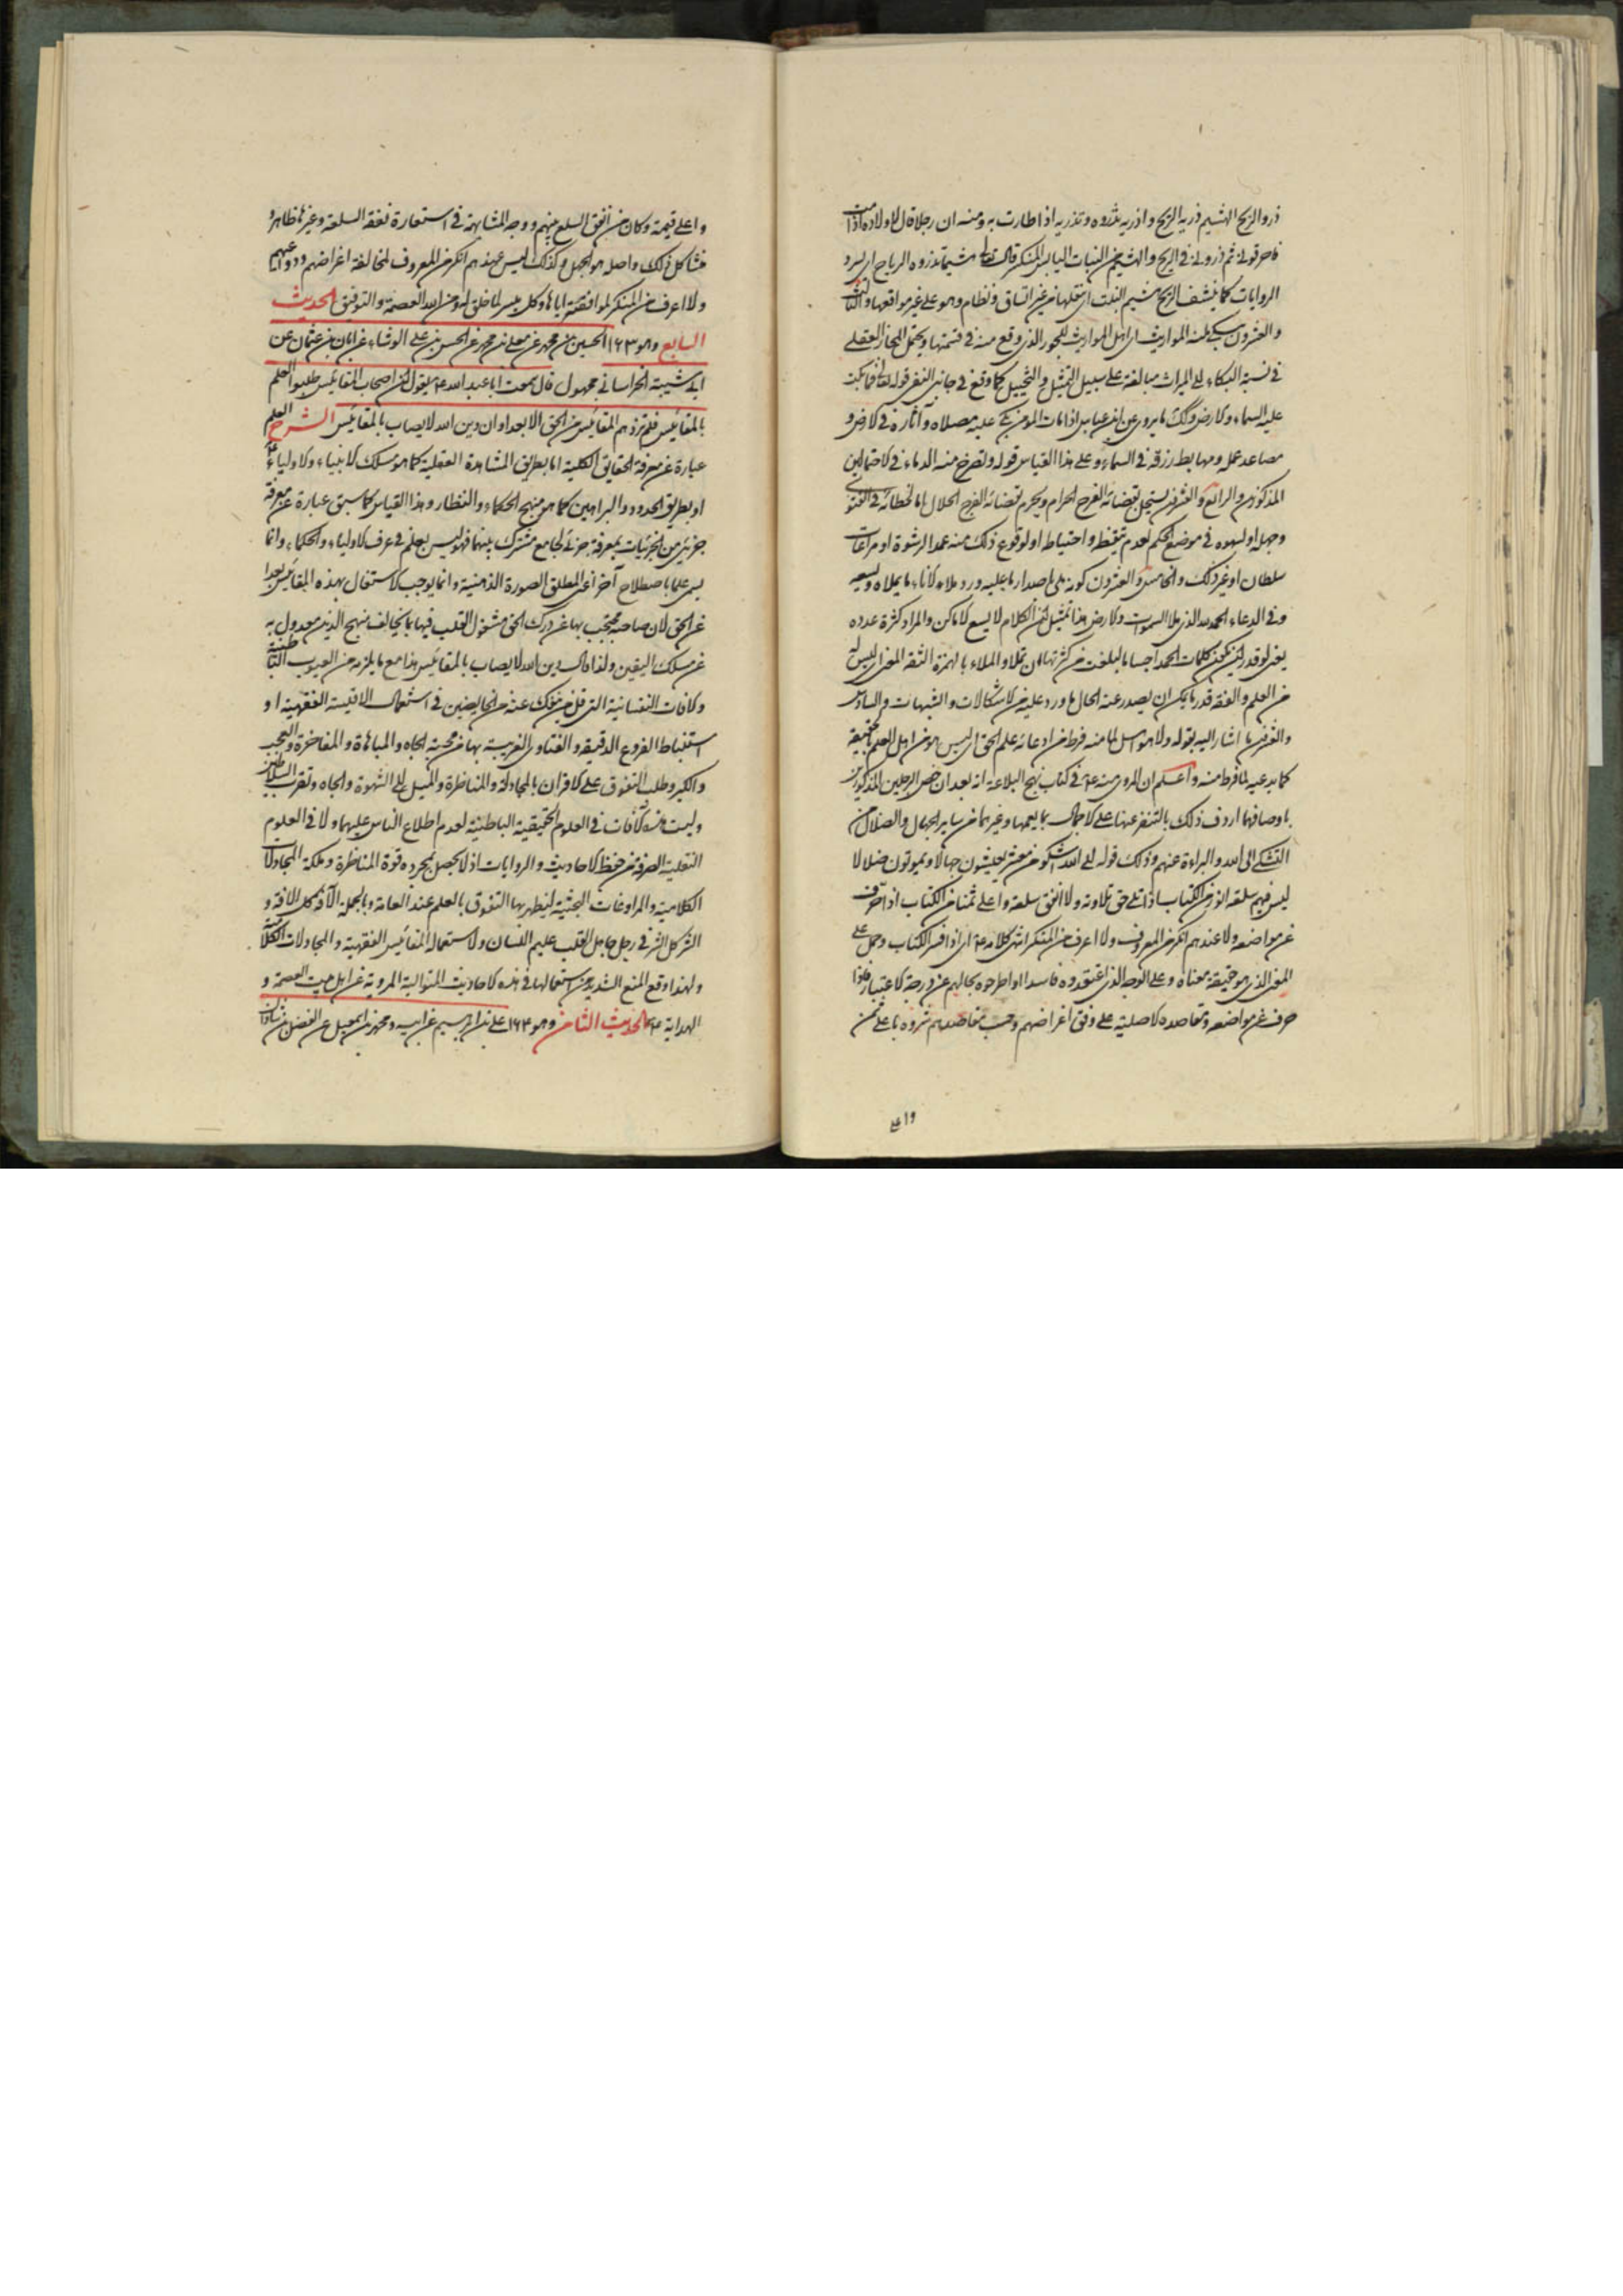 ذرو الريح الهشيم ذريه الريح و اذريه تذروه و تذريه اذا اطارت به ومنه ان رجلا قال لاولاده اذا مت
فاحرقونى ثم ذرونى فى الريح والهشيم من النبات اليابس المنكسر قال تعالى هشيما تذروه الرياح اى يسرد
الروايات كما ينسف الريح هشيم النبت اى ينقلها من غير اتساق ونظام وهو على غير مواقعها والثالث
والعشرون يبكى منه المواريث اى اهل المواريث للجور الذى وقع منه فى قسمتها ويحتمل المجاز العقلى
فى نسبة البكاء الى الميراث مبالغة على سبيل التمثيل والتخييل كما وقع فى جانب النفى قوله تعالى فما بكت
عليه السماء والارض وكذلك ما يروى عن ابن عباس اذا مات المؤمن بكى عليه مصلاه وآثاره فى الارض و
مصاعد عمله ومهابط رزقه فى السماء وعلى هذا القياس قوله وتصرخ منه الدماء فى الاحتمالين
المذكورين والرابع والعشرون يستحل بقضائه الفرج الحرام ويحرم بقضائه الفرج الحلال اما لخطائه فى الفتوى
وجهله او لسهوه فى موضع الحكم لعدم تيقظ واحتياط او لوقوع ذلك منه عمدا لرشوة او مراعات
سلطان او غير ذلك والخامس والعشرون كونه لا ملى باصدار ما عليه ورد ملاء الاناء ما يملاه ويسعه
وفى الدعاء الحمد لله الذى ملا السموات والارض هذا تمثيل لان الكلام لا يسع الاماكن والمراد كثرة عدده
يعنى لو قدر ان يكون كلمات الحمد اجساما لبلغت من كثرتها ان تملا و الملاء بالهمزة الثقة الغنى اى ليس له
من العلم والفقه قدر ما يمكن ان يصدر عنه انحلال ما ورد عليه من الاشكالات والشبهات والسادس
والعشرون ما اشار اليه بقوله ولا هو اهل لما منه فرط من ادعائه علم الحق اى ليس هو من اهل العلم بالحقيقة
كما يدعيه لما فرط منه واعلم ان المروى عنه ع فى كتاب نهج البلاغة انه بعد ان خص الرجلين المذكورين
باوصافهما اردف ذلك بالتنفر عنها على الاجمال بما يعمها وغيرهما من ساير الجهال والضلال من
التشكى الى الله والبراءة عنهم وذلك قوله الى الله اشكو من معشر يعيشون جهالا ويموتون ضلالا
ليس فيهم سلعة ابور من الكتاب اذا تلى حق تلاوته ولا انفق سلعة واغلى ثمنا من الكتاب اذا حرف
عن مواضعه ولا عندهم انكر من المعروف ولا اعرف من المنكر انتهى كلامه ع اى اذا فسر الكتاب وحمل على
المعنى الذى هو حقيقة معناه وعلى الوجه الذى اعتقدوه فاسدا او اطرحوه بجهالتهم عن درجة الاعتبار فاذا
حرف عن مواضعه ومقاصده الاصلية على وفق اغراضهم وحسب مقاصدهم شروه باعلى ثمن
واعلى
واعلى قيمة وكان من انفق السلع بينهم ووجه المشابهة فى استعارة لفظ السلعة وغيرها ظاهر و
منشا كل ذلك واصله هو الجهل وكذلك ليس عندهم انكر من المعروف لمخالفة اغراضهم ودواعيهم
ولا اعرف من المنكر لموافقته اياها وكل ميسر لما خلق له ومن الله العصمة والتوفيق الحديث
السابع وهو ١٦٣ الحسين بن محمد عن معلى بن محمد عن الحسن بن على الوشاء عن ابان بن عثمان عن
ابى شيبة الخراسانى مجهول قال سمعت ابا عبد الله ع يقول ان اصحاب المقائيس طلبوا العلم
بالمقائيس فلم تزدهم المقائيس من الحق الا بعدا وان دين الله لا يصاب بالمقائيس الشرح العلم
عبارة عن معرفة الحقايق الكلية اما بطريق المشاهدة العقلية كما هو مسلك الانبياء والاولياء ع
او بطريق الحدود والبراهين كما هو منهج الحكماء والنظار وهذا القياس كما سبق عبارة عن معرفة
جزئى من الجزئيات بمعرفة جزئى لجامع مشترك بينهما فهو ليس بعلم فى عرف الاولياء والحكماء وانما
يسمى علما باصطلاح آخر اعنى المطلق الصورة الذهنية وانما يوجب الاشتغال بهذه المقائيس بعدا
عن الحق لان صاحبه محتجب بها عن درك الحق مشغول القلب فيها بما يخالف منهج الدين معدول به
عن مسلك اليقين ولذا قال دين الله لا يصاب بالمقائيس هذا مع ما يلزمه من العيوب الباطنية
والآفات النفسانية التى قل من ينفك عنه من الخايضين فى استعمال الاقيسة الفقهية او
استنباط الفروع الدقيقة والفتاوى الغريبة بها من محبة الجاه والمباهاة والمفاخرة والعجب
والكبر وطلب التفوق على الاقران بالمجادلة والمناظرة والميل الى الشهوة والجاه وتقرب السلاطين
وليست هذه الآفات فى العلوم الحقيقية الباطنية لعدم اطلاع الناس عليهما ولا فى العلوم
النقلية الصرفة من حفظ الاحاديث والروايات اذ لا يحصل بمجرده قوة المناظرة وملكة المجادلات
الكلامية والمراوغات البحثية ليظهر بها التفوق بالعلم عند العامة وبالجملة الآفة كل الآفة و
الشر كل الشر فى رجل جاهل القلب عليم اللسان والاستعمال للمقائيس الفقهية والمجادلات الكلامية
ولهذا وقع المنع الشديد من استعمالها فى هذه الاحاديث المتوالية المروية عن اهل بيت العصمة و
الهداية ع الحديث الثامن وهو ١٦٤ على بن ابراهيم عن ابيه ومحمد بن اسمعيل عن الفضل بن شاذان